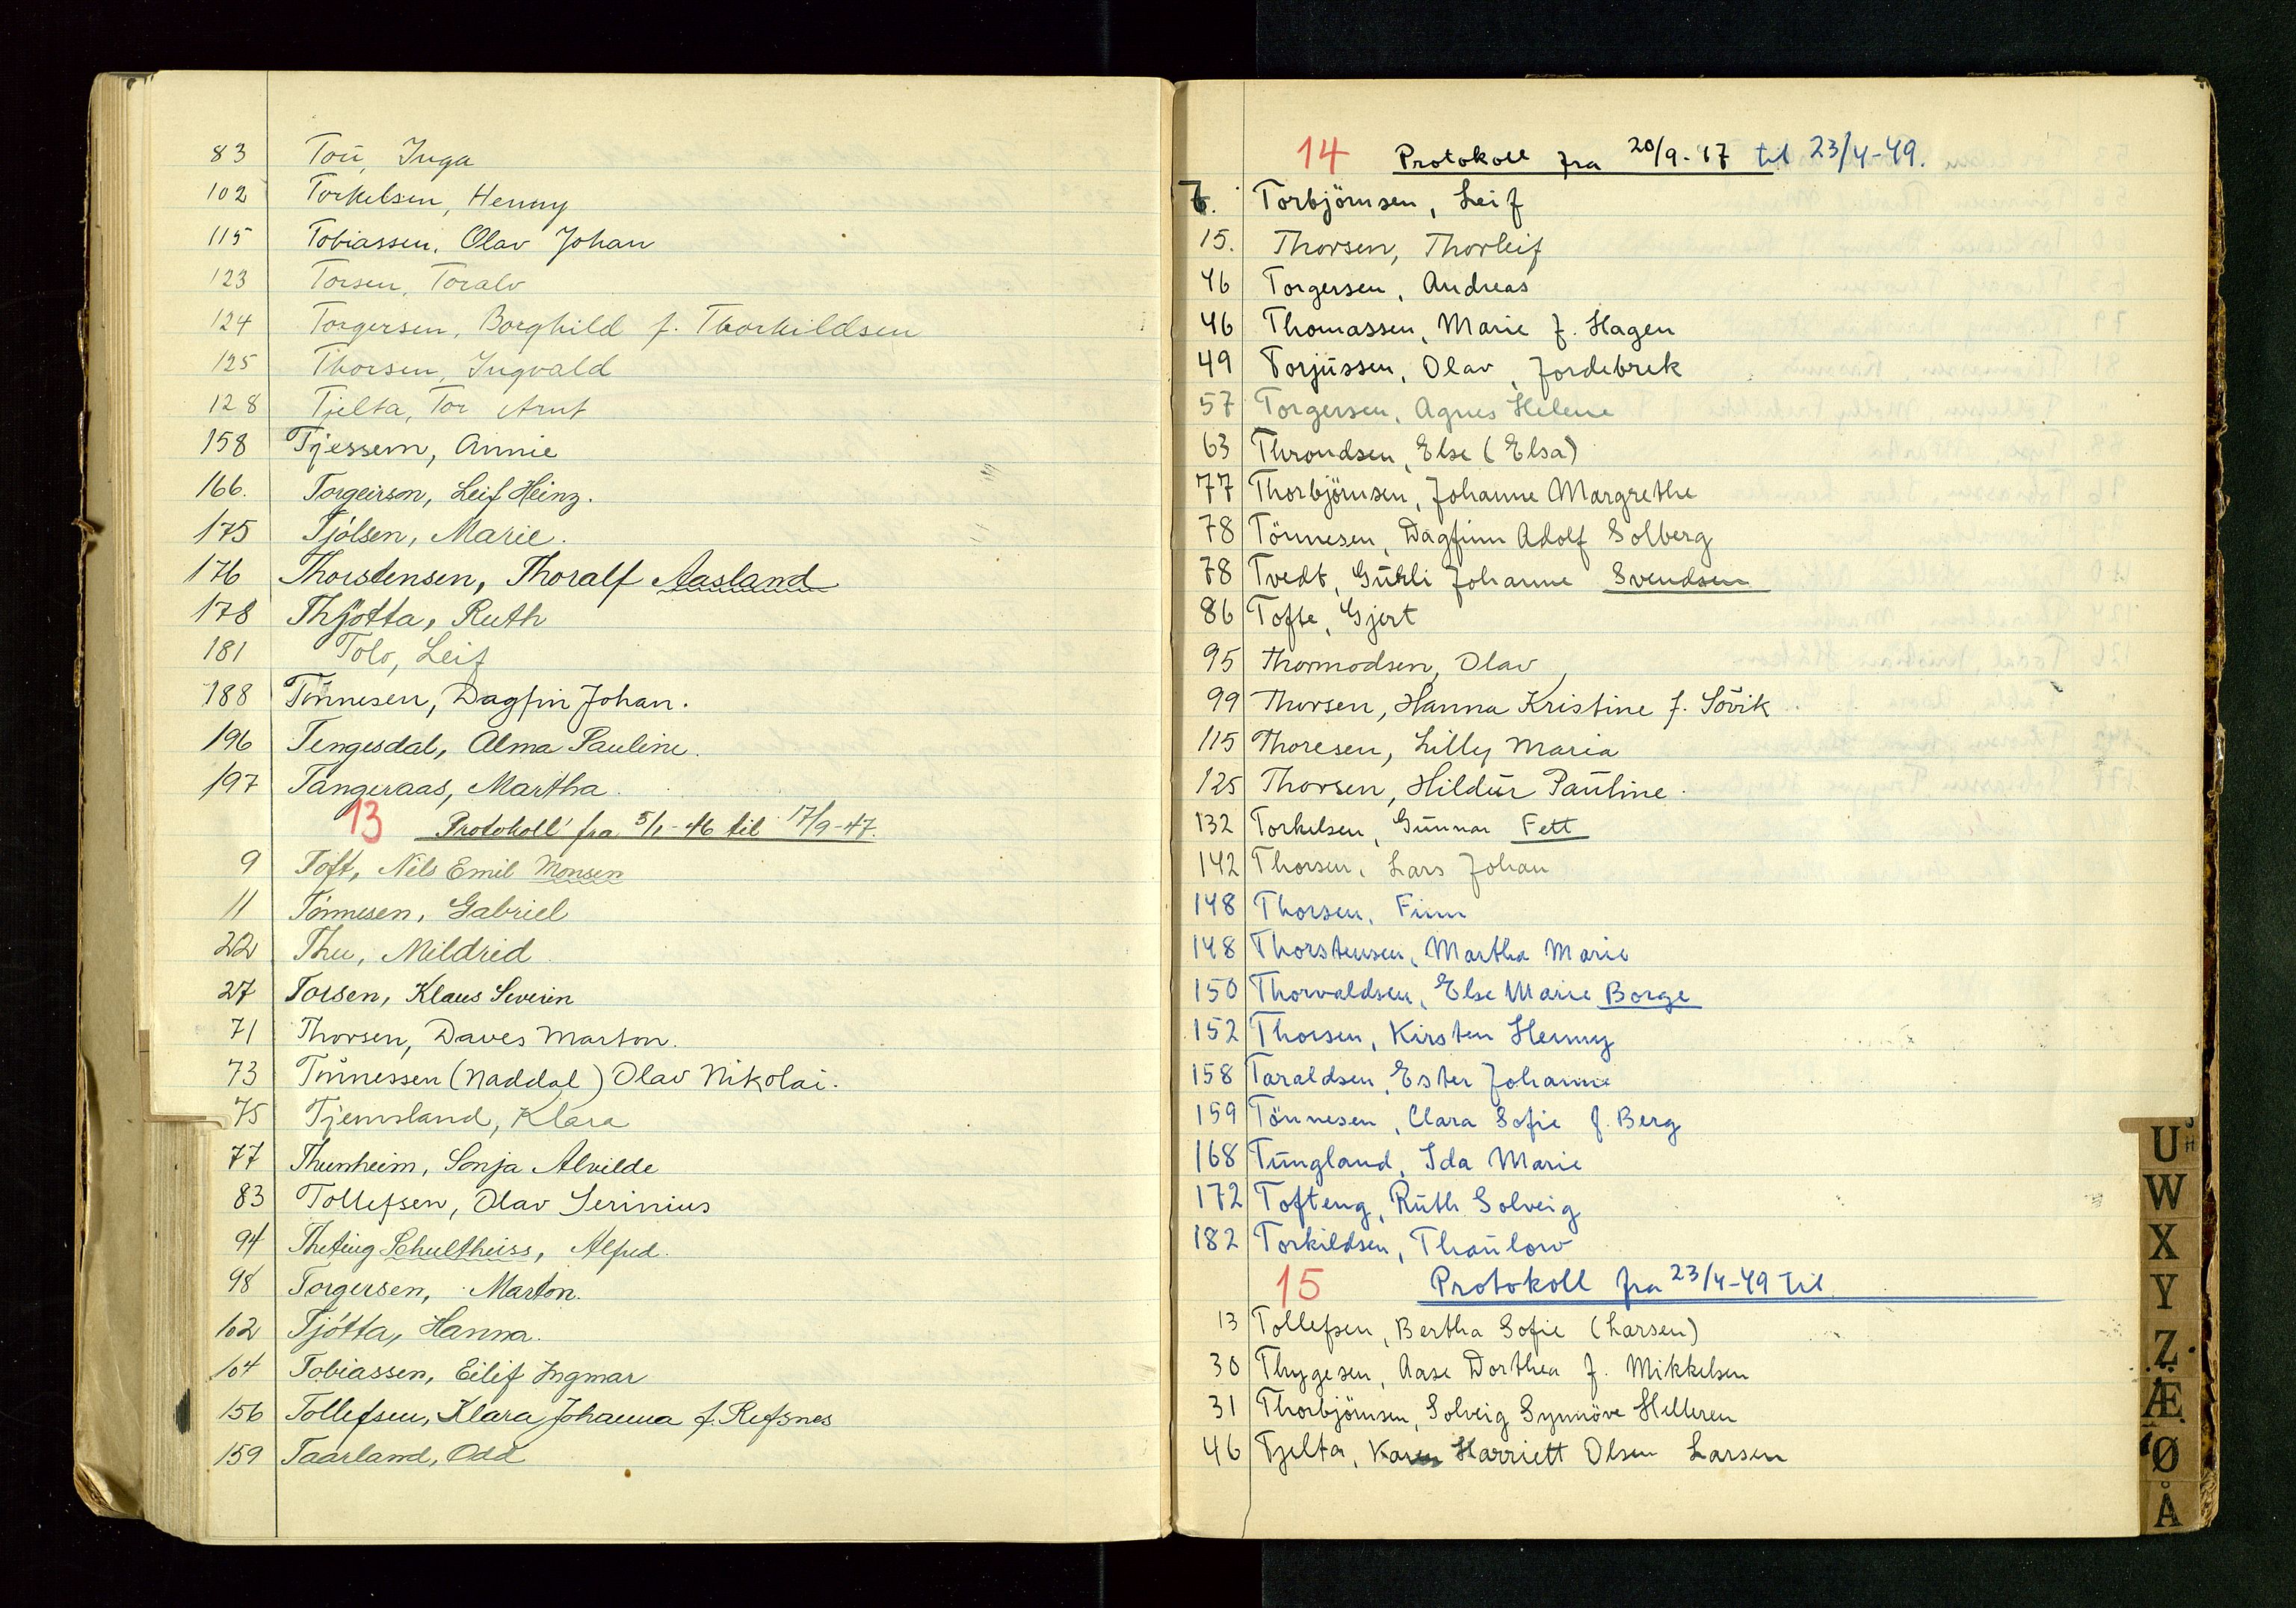 83 Tou, Inga
102 Torkelsen, Henny
115 Tobiassen, Olav Johan
123 Torsen, Toralv
124 Torgersen, Borghild f. Thorkildsen
125 Thorsen, Ingvald
128 Tjelta, Tor Arnt
158 Tjessem, Annie
166. Torgeirson, Leif Heinz.
175 Tjólsen, Marie.
176 Thorstensen, Thoralf Aasland
178 Thjøtta, Ruth
181 Tolo, Leif
188 Tönnesen, Dagfin Johan.
196 Tengesdal, Alma Pauline.
197 Tangeraas, Martha.
13 Protokoll fra 5/1-46 til 17/9-47.
9 Toft, Nils Emil Monsen
11 Tönnesen, Gabriel
22 Thu, Mildrid.
27 Torsen, Klaus Severin
71 Thorsen, Daves Marton.
73 Tönnessen (Naddal) Olav Nikolai.
75 Tjemsland, Klara
77 Thunheim, Sonja Alvilde
83 Tollefsen, Olav Serinius
94 Theting Schultheiss, Alfred.
98 Torgersen, Marton.
102 Tjótta, Hanna.
104 Tobiassen, Eilif Ingmar
156 Tollefsen, Klara Johanna f. Refsnes
159 Taarland, Odd
14 Protokoll fra 20/9-47 til 23/4-49.
7. Torbjörnsen, Leif
15. Thorsen, Thorleif
46 Torgersen, Andreas
46 Thomassen, Marie f. Hagen
49 Torjussen, Olav, Jordebrek
57 Torgersen, Agnes Helene
63 Throndsen, Else (Elsa)
77 Thorbjörnsen, Johanne Margrethe
78 Tönnesen, Dagfinn Adolf Solberg
78 Tvedt, Johanne Svendsen
86 Tofte, Gjert
95 Thormodsen, Olav
99 Thorsen, Hanna Kristine f. Sövik
115 Thoresen, Lilly Maria
125 Thorsen, Hildur Pauline.
132 Torkelsen, Gunnar Fett
142 Thorsen, Lars Johan
148 Thorsen, Finn
148 Thorstensen, Martha Marie
150 Thorvaldsen, Else Marie Borge
152 Thorsen, Kirsten Henny
158 Taraldsen, Ester Johanne
159 Tönnesen, Clara Sofie f. Berg
168 Tungland, Ida Marie
172 Tofteng, Ruth Solveig
182 Torkildsen, Thaulow
15 Protokoll fra 23/4-49 til
13 Tollefsen, Bertha Sofie (Larsen)
30 Thygesen, Aase Dorthea f. Mikkelsen
31 Thorbjörnsen, Solveig Synnöve Helleren
46 Tjelta, Karen Harriett Olsen Larsen
U
W
X
Y
Z
Æ
Ø
Å